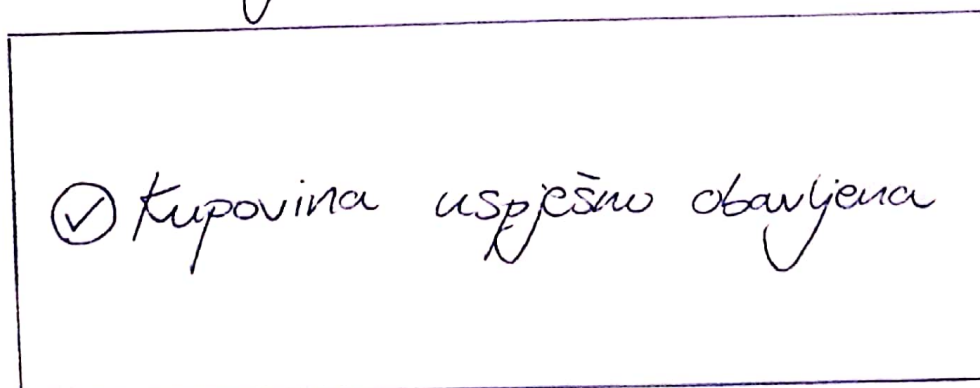 Kupovina uspješno obavljena